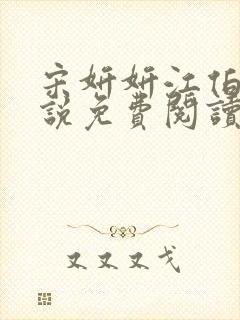 宋妍妍江伯
說免費閱讀
又又又戈